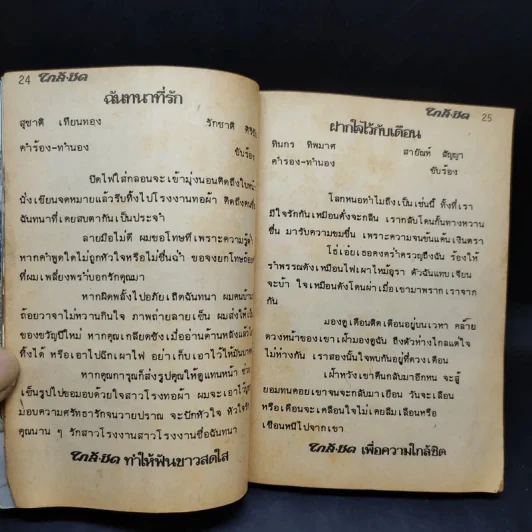 24 ใกล้-ชิด
ฉันทนาที่รัก
สุชาติ เทียนทอง รักชาติ
คำร้อง-ทำนอง ขับร้อง
ปิดไฟใส่กลอนจะเข้ามุ้งนอนคิดถึงใบหน้า
นั่งเขียนจดหมายแล้วรีบทิ้งไปโรงงานทอผ้า คิดถึงคนชื่อ
ฉันทนาที่เคยสบตากันเป็นประจำ
ลายมือไม่ดี ผมขอโทษทีเพราะความรู้ต่ำ
หากคำพูดใดไม่ถูกหัวใจหรือไม่ชื่นฉ่ำ ขอจงยกโทษถ้อย
ที่ผมเพลี่ยงพร่ำบอกรักคุณมา
หากผิดพลั้งไปอภัยเถิดฉันทนา ผมคนบ้าน
ถ้อยวาจาไม่หวานกินใจ ภาพถ่ายลายเซ็น ผมส่งให้เป็น
ของขวัญปีใหม่ หากคุณเกลียดชังเมื่ออ่านด้านหลังแล้ว
ทิ้งได้ หรือเอาไปฉีกเผาไฟ อย่าเก็บเอาไว้ให้มันบาด
หากคุณการุณก็ส่งรูปคุณให้ดูแทนหน้า ช่วย
เซ็นรูปไปขอมอบด้วยใจสาวโรงทอผ้า ผมจะเอาไว้บูชา
มอบความศรัทธารักจนวายปราณ จะปักหัวใจ หัวใจรัก
คุณนาน ๆ รักสาวโรงงานสาวโรงงานชื่อฉันทนา
ใกล้-ชิด ทำให้ฟันขาวสดใส
ใกล้-ชิด 25
ฝากใจไว้กับเดือน
ทินกร ทิพมาศ สายัณห์ สัญญา
คำร้อง-ทำนอง ขับร้อง
โลกหนอทำไมถึงเป็นเช่นนี้ ทั้งที่เรา
มีใจรักกันเหมือนดั่งจะกลืน เรากลับโดนกั้นทางหวาน
ชื่น มารับความขมขื่น เพราะความจนข้นแค้นเงินตรา
โธ่เอ๋ยเธอคงคร่ำครวญถึงฉัน ร้องไห้
รำพรรณดังเหมือนไฟเผาไหม้อุรา ตัวฉันแทบเจียน
จะบ้า ใจเหมือนดังโดนผ่าเมื่อเขามาพรากเราจาก
กัน
มองดูเดือนติดเตือนอยู่บนเวหา คล้าย
ดวงหน้าของเขา เฝ้ามองดูฉัน ถึงตัวห่างไกลแต่ใจ
ไม่ห่างกัน เราสองนั้นใจพบกันอยู่ที่ดวงเดือน
เฝ้าหวังเขาคืนกลับมาอีกหน จะสู้
ยอมทนคอยเขาจนจะกลับมาเยือน วันจะเลือน
หรือเดือนจะเคลื่อนใจไม่เคยลืมเลือนหรือ
เชือนหนีไปจากเขา
ใกล้-ชิด เพื่อความใกล้ชิด